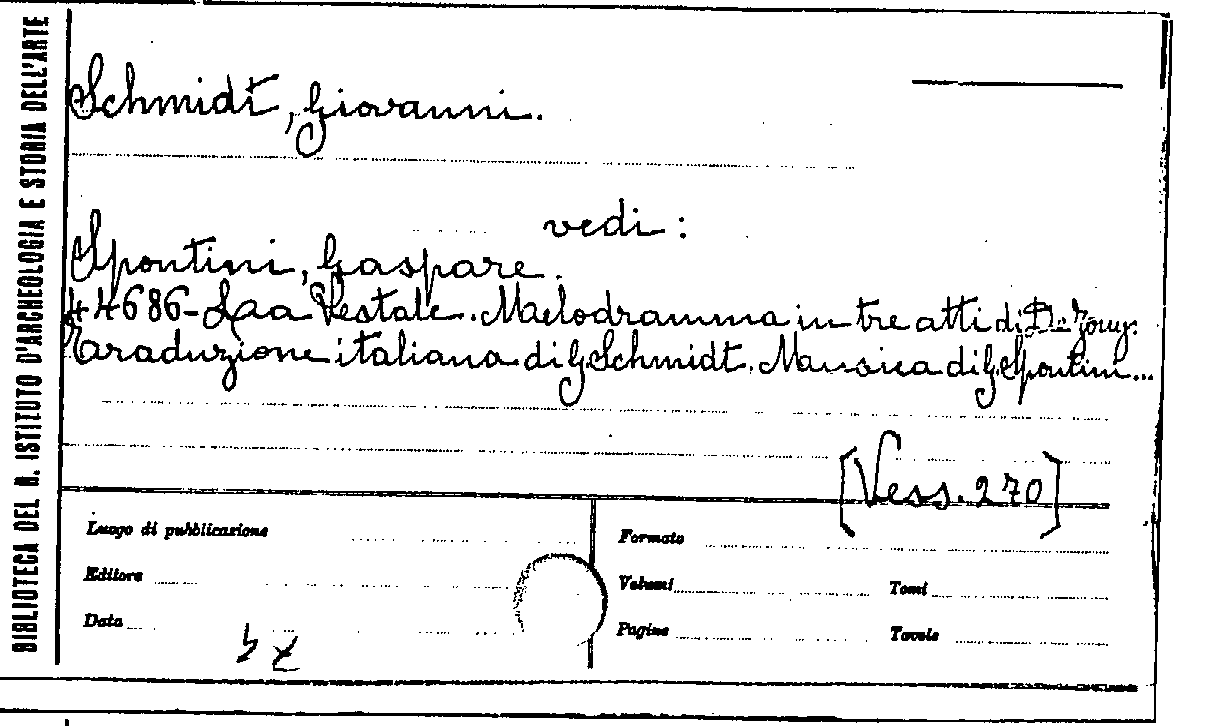 BIBLIOTECA DEL R. ISTITUTO D'ARCHEOLOGIA E STORIA DELL'ARTE
Schmidt, Giovanni.
vedi:
Spontini, Gaspare.
44686 - Laa Vestale. Melodramma in tre atti di De Jouy.
Traduzione italiana di G. Schmidt. Musica di G. Spontini...
[Vess. 270]
Luogo di pubblicazione
Formato
Editore
Volumi
Tomi
Data
Pagine
Tavole